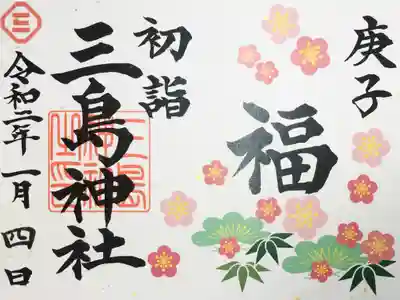 庚子
福
初詣
三島神社
令和二年一月四日